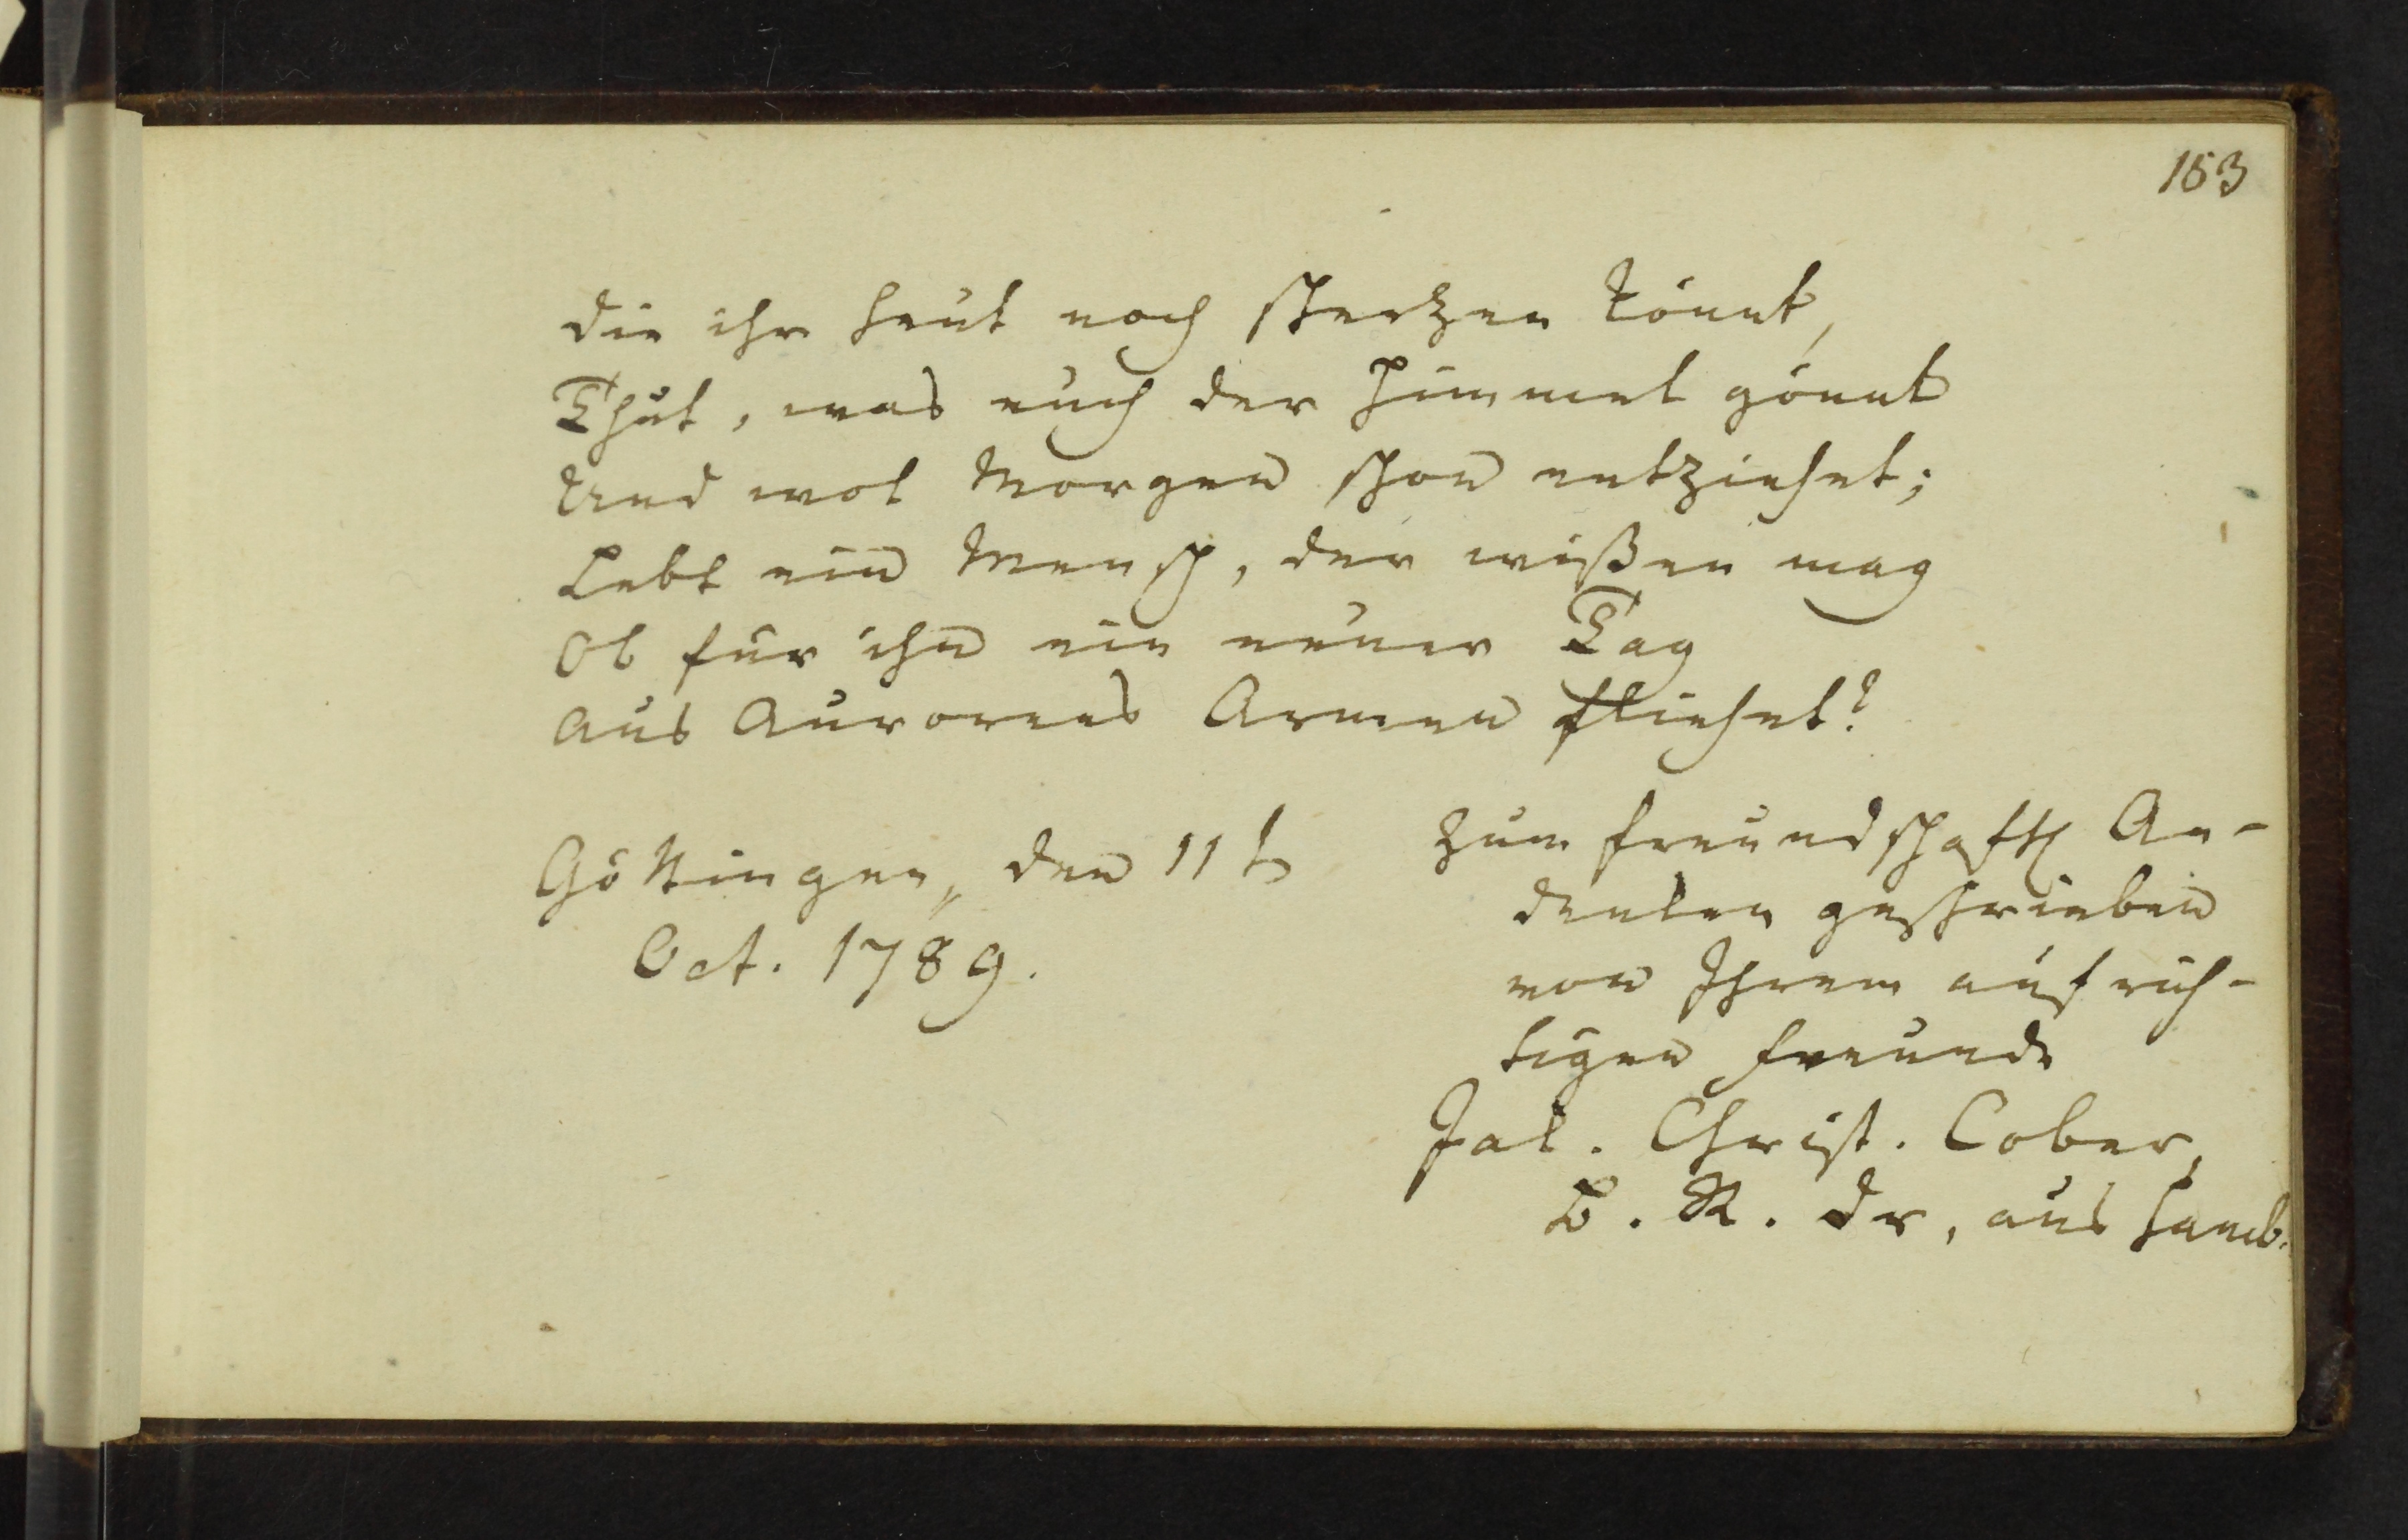 153
Die ihr heut noch schertzen könnt,
Thut, was euch der Himmel gönnt
Und wol Morgen schon entziehet;
Lebt ein Mensch, der wißen mag
Ob für ihn ein neuer Tag
Aus Aurorens Armen fliehet?
Göttingen, den 11t
Oct. 1789.
Zum freundschaftl An-
denken geschrieben
von Ihrem aufrich-
tigen Freunde
Jak. Christ. Cober,
B. R. Dr, aus Hamb.